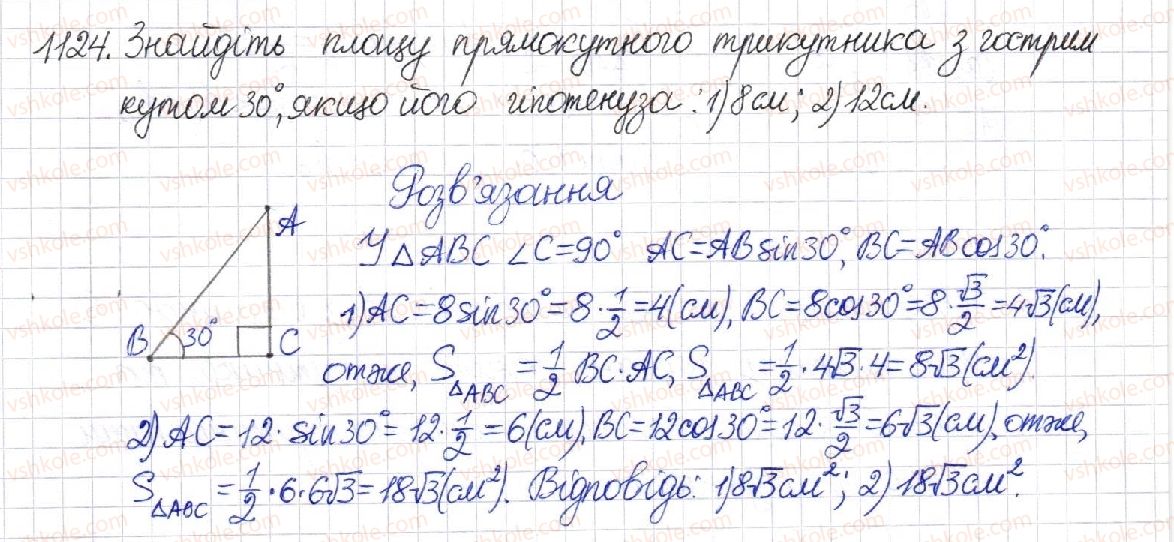 1124. Знайдіть площу прямокутного трикутника з гострим
кутом 30°, якщо його гіпотенуза: 1) 8 см; 2) 12 см.
Розв'язання
A
B 30° C
У △ABC ∠C=90° AC=AB sin30°, BC=AB cos30°.
1) AC=8 sin30°=8·1/2=4(см), BC=8cos30°=8·√3/2=4√3(см),
отже, S△ABC=1/2 BC·AC, S△ABC=1/2·4√3·4=8√3(см²).
2) AC=12·sin30°=12·1/2=6(см), BC=12cos30°=12·√3/2=6√3(см), отже,
S△ABC=1/2·6·6√3=18√3(см²). Відповідь: 1) 8√3см²; 2) 18√3см².